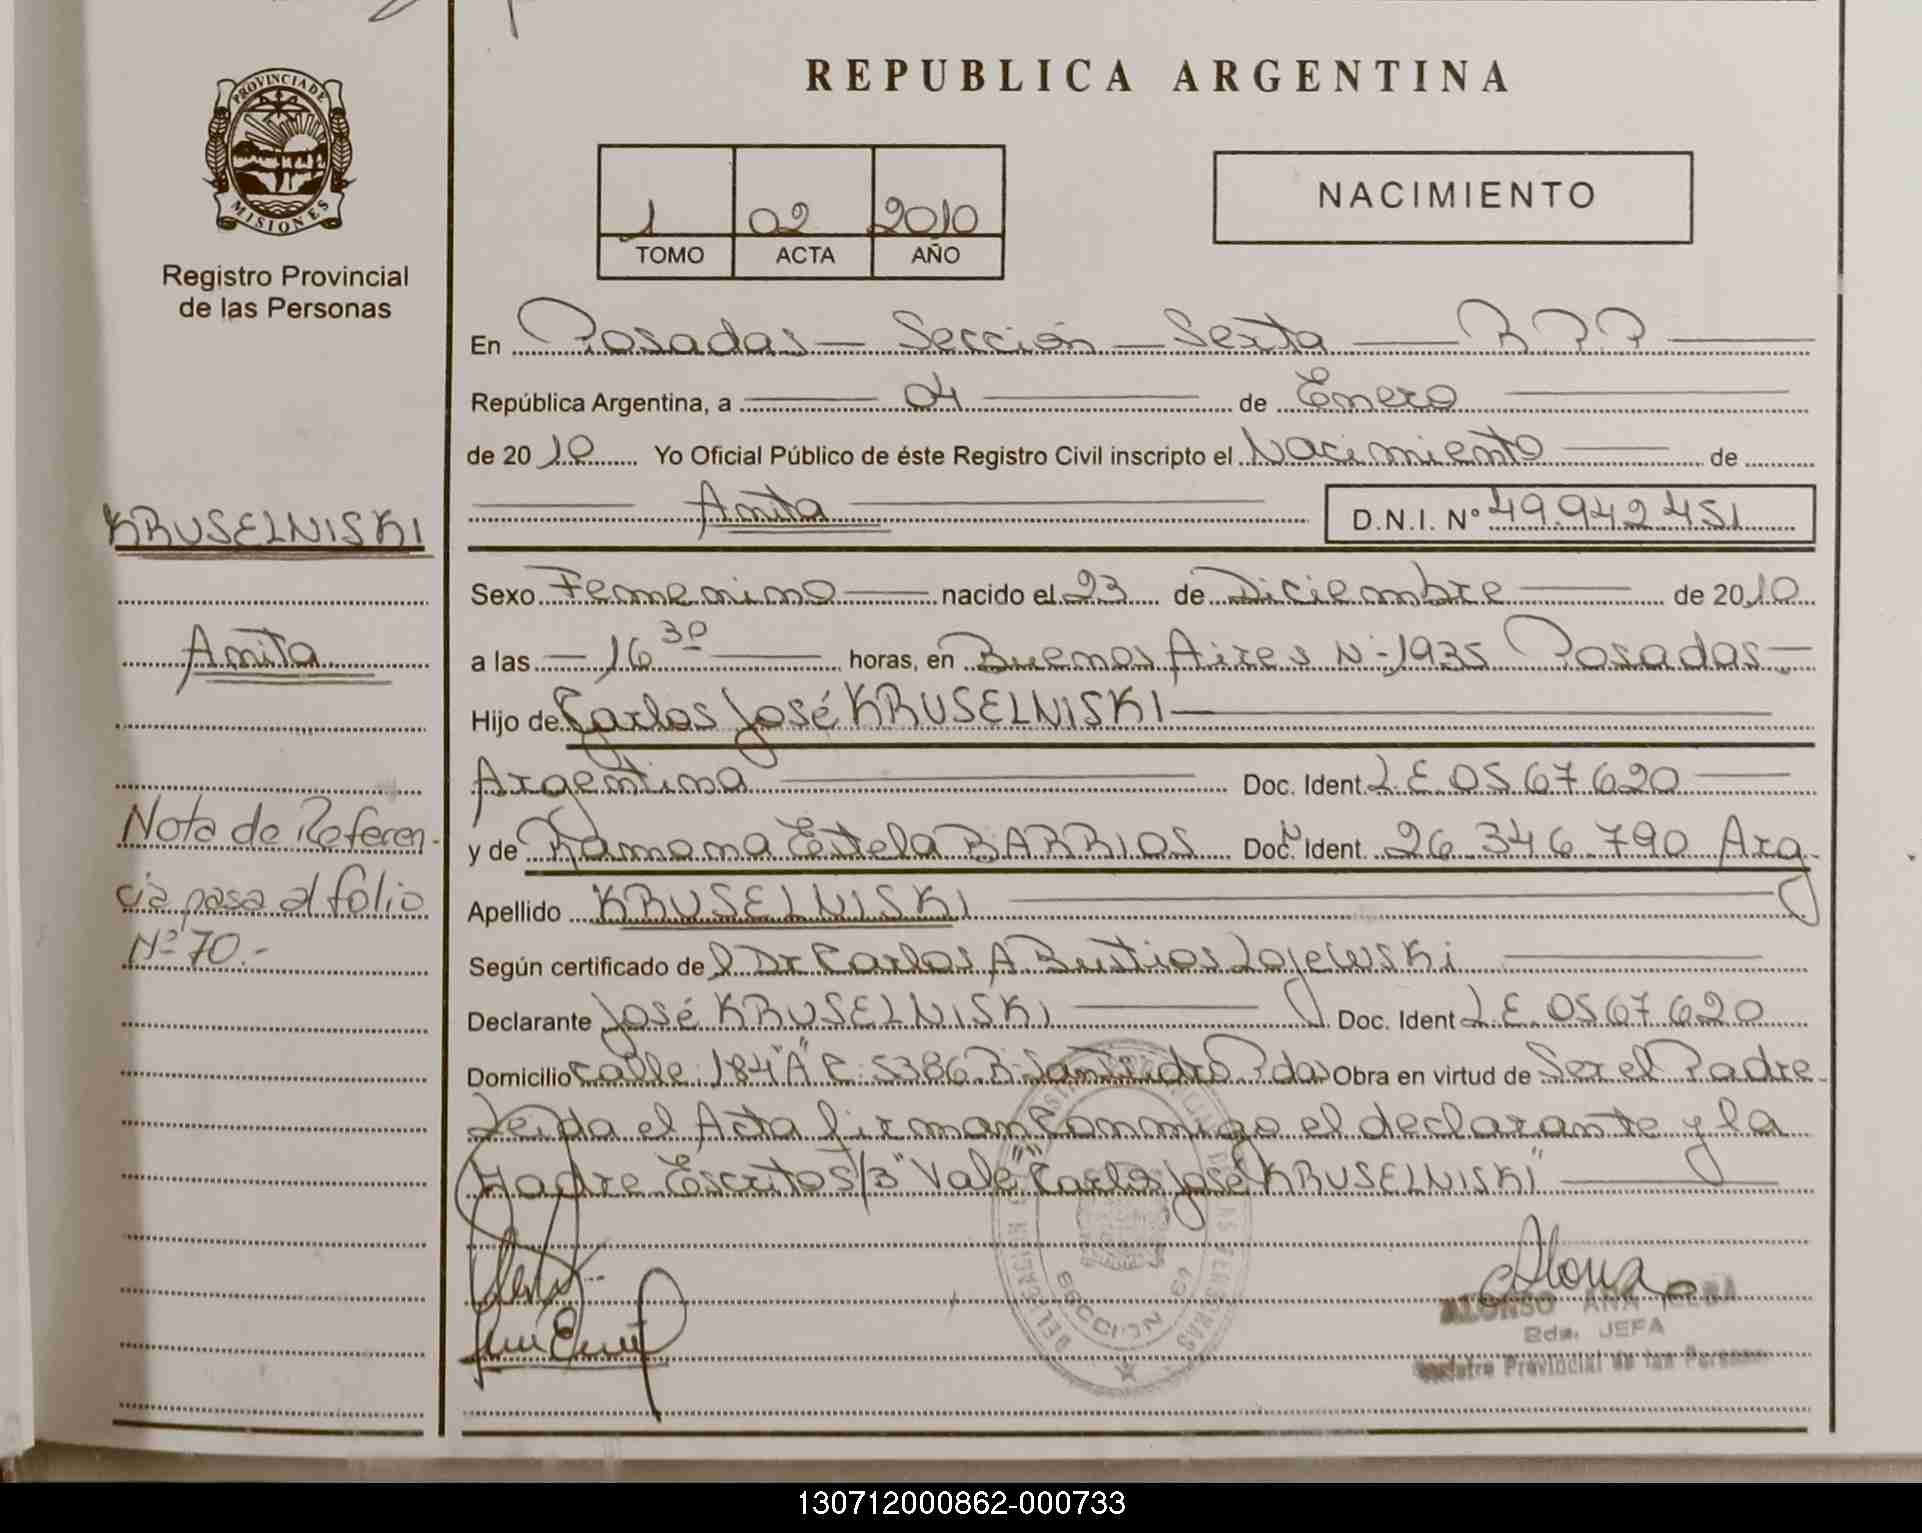 PROVINCIA DE
MISIONES
Registro Provincial
de las Personas
REPUBLICA ARGENTINA
1 02 2010
TOMO ACTA AÑO
NACIMIENTO
En Posadas — Sección — Sexta — R P P
República Argentina, a 04 de Enero
de 2010 Yo Oficial Público de éste Registro Civil inscripto el Nacimiento de
Anita D.N.I. Nº 49.942.451
Sexo Femenino nacido el 23 de Diciembre de 2010
a las 16 30 horas, en Buenos Aires Nº 1935 Posadas
Hijo de Carlos José KRUSELNISKI
Argentina Doc. Ident. L.E. 0567620
y de Ramona Estela BARRIOS Doc. Ident. 26.346.790 Arg
Apellido KRUSELNISKI
Según certificado del Dr Carlos A Bustios Lojewski
Declarante José KRUSELNISKI Doc. Ident L.E. 0567620
Domicilio Calle 184 "A" C: 5386 Bº San Isidro Pdas Obra en virtud de Ser el Padre
Leida el Acta firman conmigo el declarante y la
Madre Escritos/3 "Vale" "Carlos José KRUSELNISKI"
KRUSELNISKI
Anita
Nota de Referen-
cia pasa al folio
Nº 70.-
SECCION 6ª
ALONSO ANA
2da. JEFA
Registro Provincial de las Personas
130712000862-000733